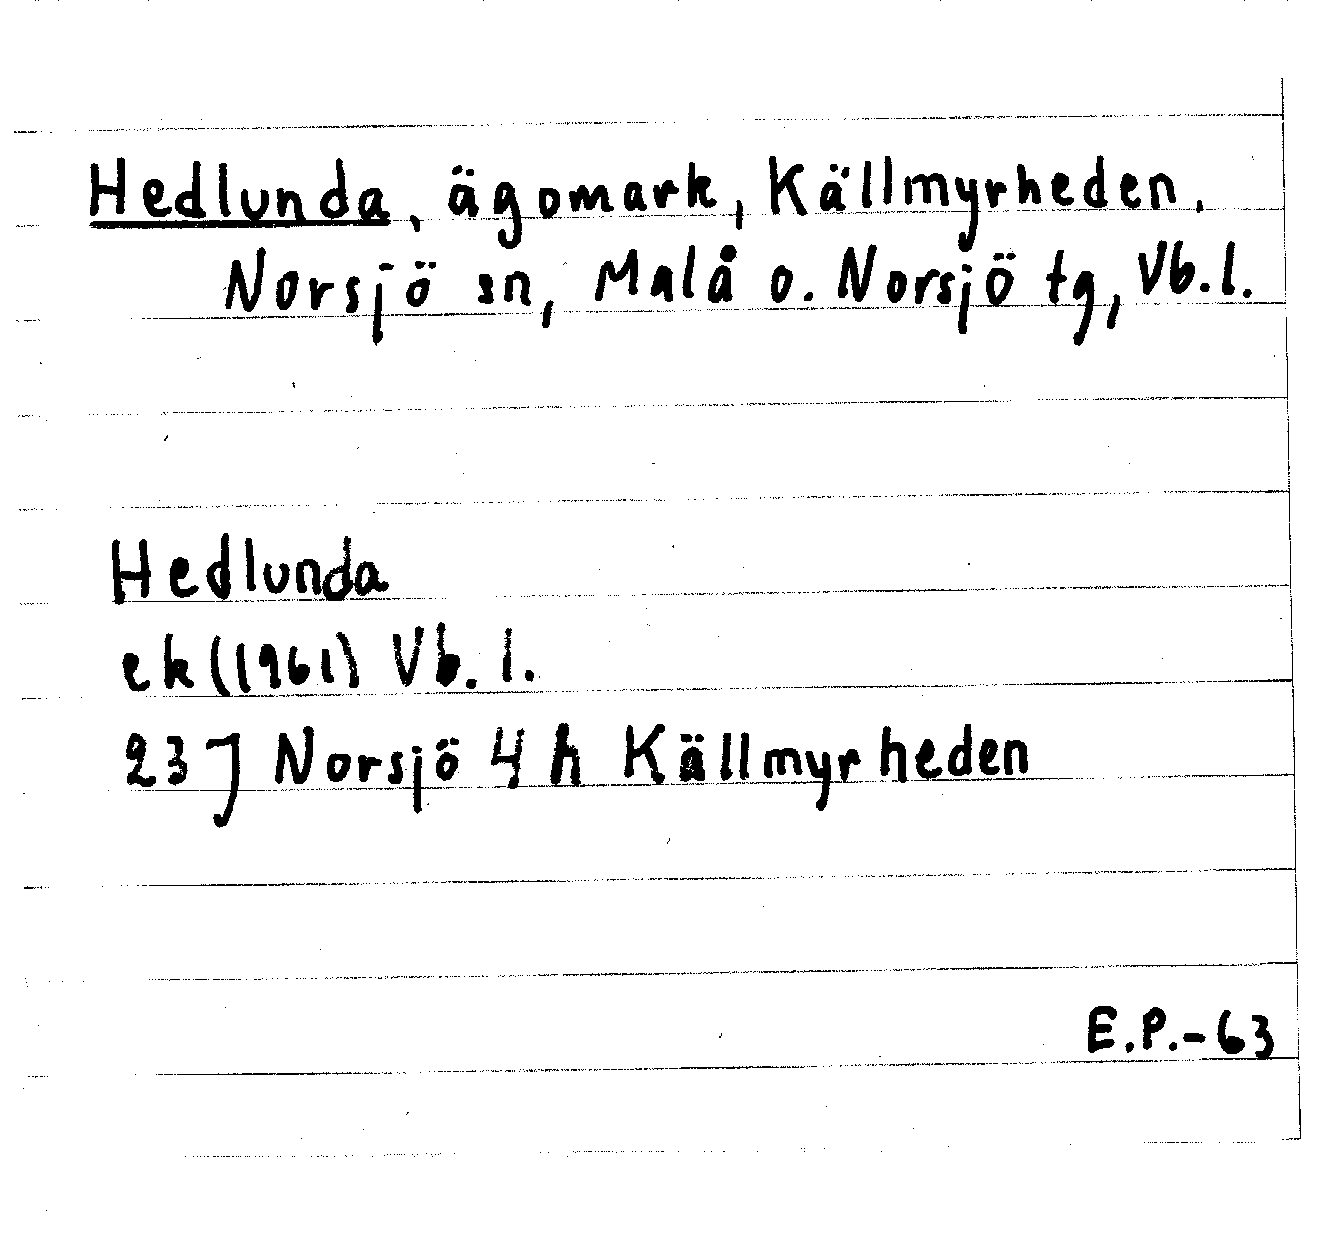 Hedlunda, ägomark, Källmyrheden,
Norsjö sn, Malå o. Norsjö tg, Vb.l.
Hedlunda
ek (1961) Vb. l.
23J Norsjö 4 h Källmyrheden
E.P.-63